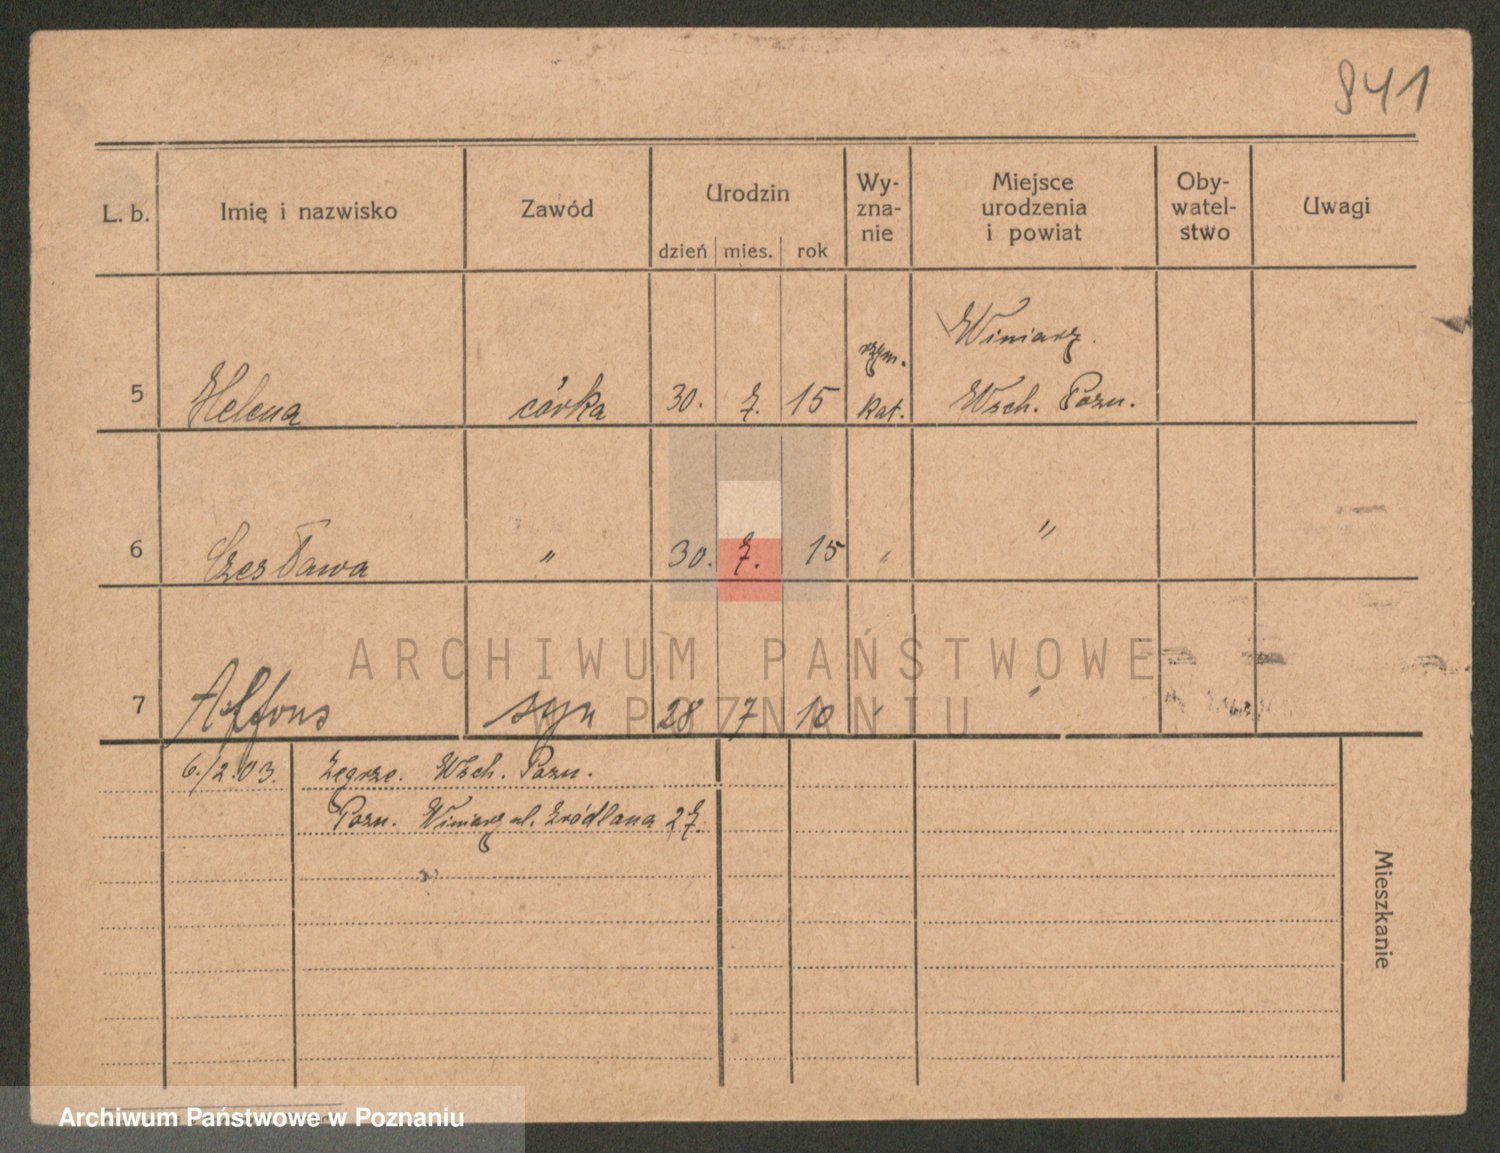 841
L. b. Imię i nazwisko Zawód Urodzin dzień mies. rok Wy-zna-nie Miejsce urodzenia i powiat Oby-watel-stwo Uwagi
Winiary
rzym.
5 Helena córka 30. 7. 15 kat. Wsch. Pozn.
6 Czesława " 30. 7. 15 " "
ARCHIWUM PAŃSTWOWE
W POZNANIU
7 Alfons syn 28 7 10 " "
6./2.03. Zegrze. Wsch. Pozn.
Pozn. Winiary ul. Źródlana 27.
Mieszkanie
Archiwum Państwowe w Poznaniu